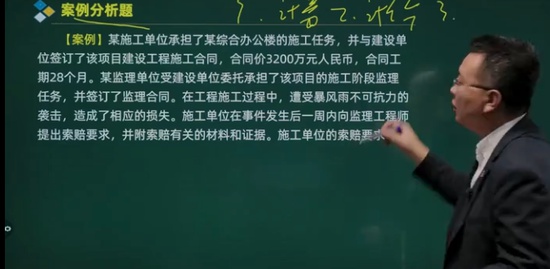 案例分析题
【案例】某施工单位承担了某综合办公楼的施工任务，并与建设单
位签订了该项目建设工程施工合同，合同价3200万元人民币，合同工
期28个月。某监理单位受建设单位委托承担了该项目的施工阶段监理
任务，并签订了监理合同。在工程施工过程中，遭受暴风雨不可抗力的
袭击，造成了相应的损失。施工单位在事件发生后一周内向监理工程师
提出索赔要求，并附索赔有关的材料和证据。施工单位的索赔要求